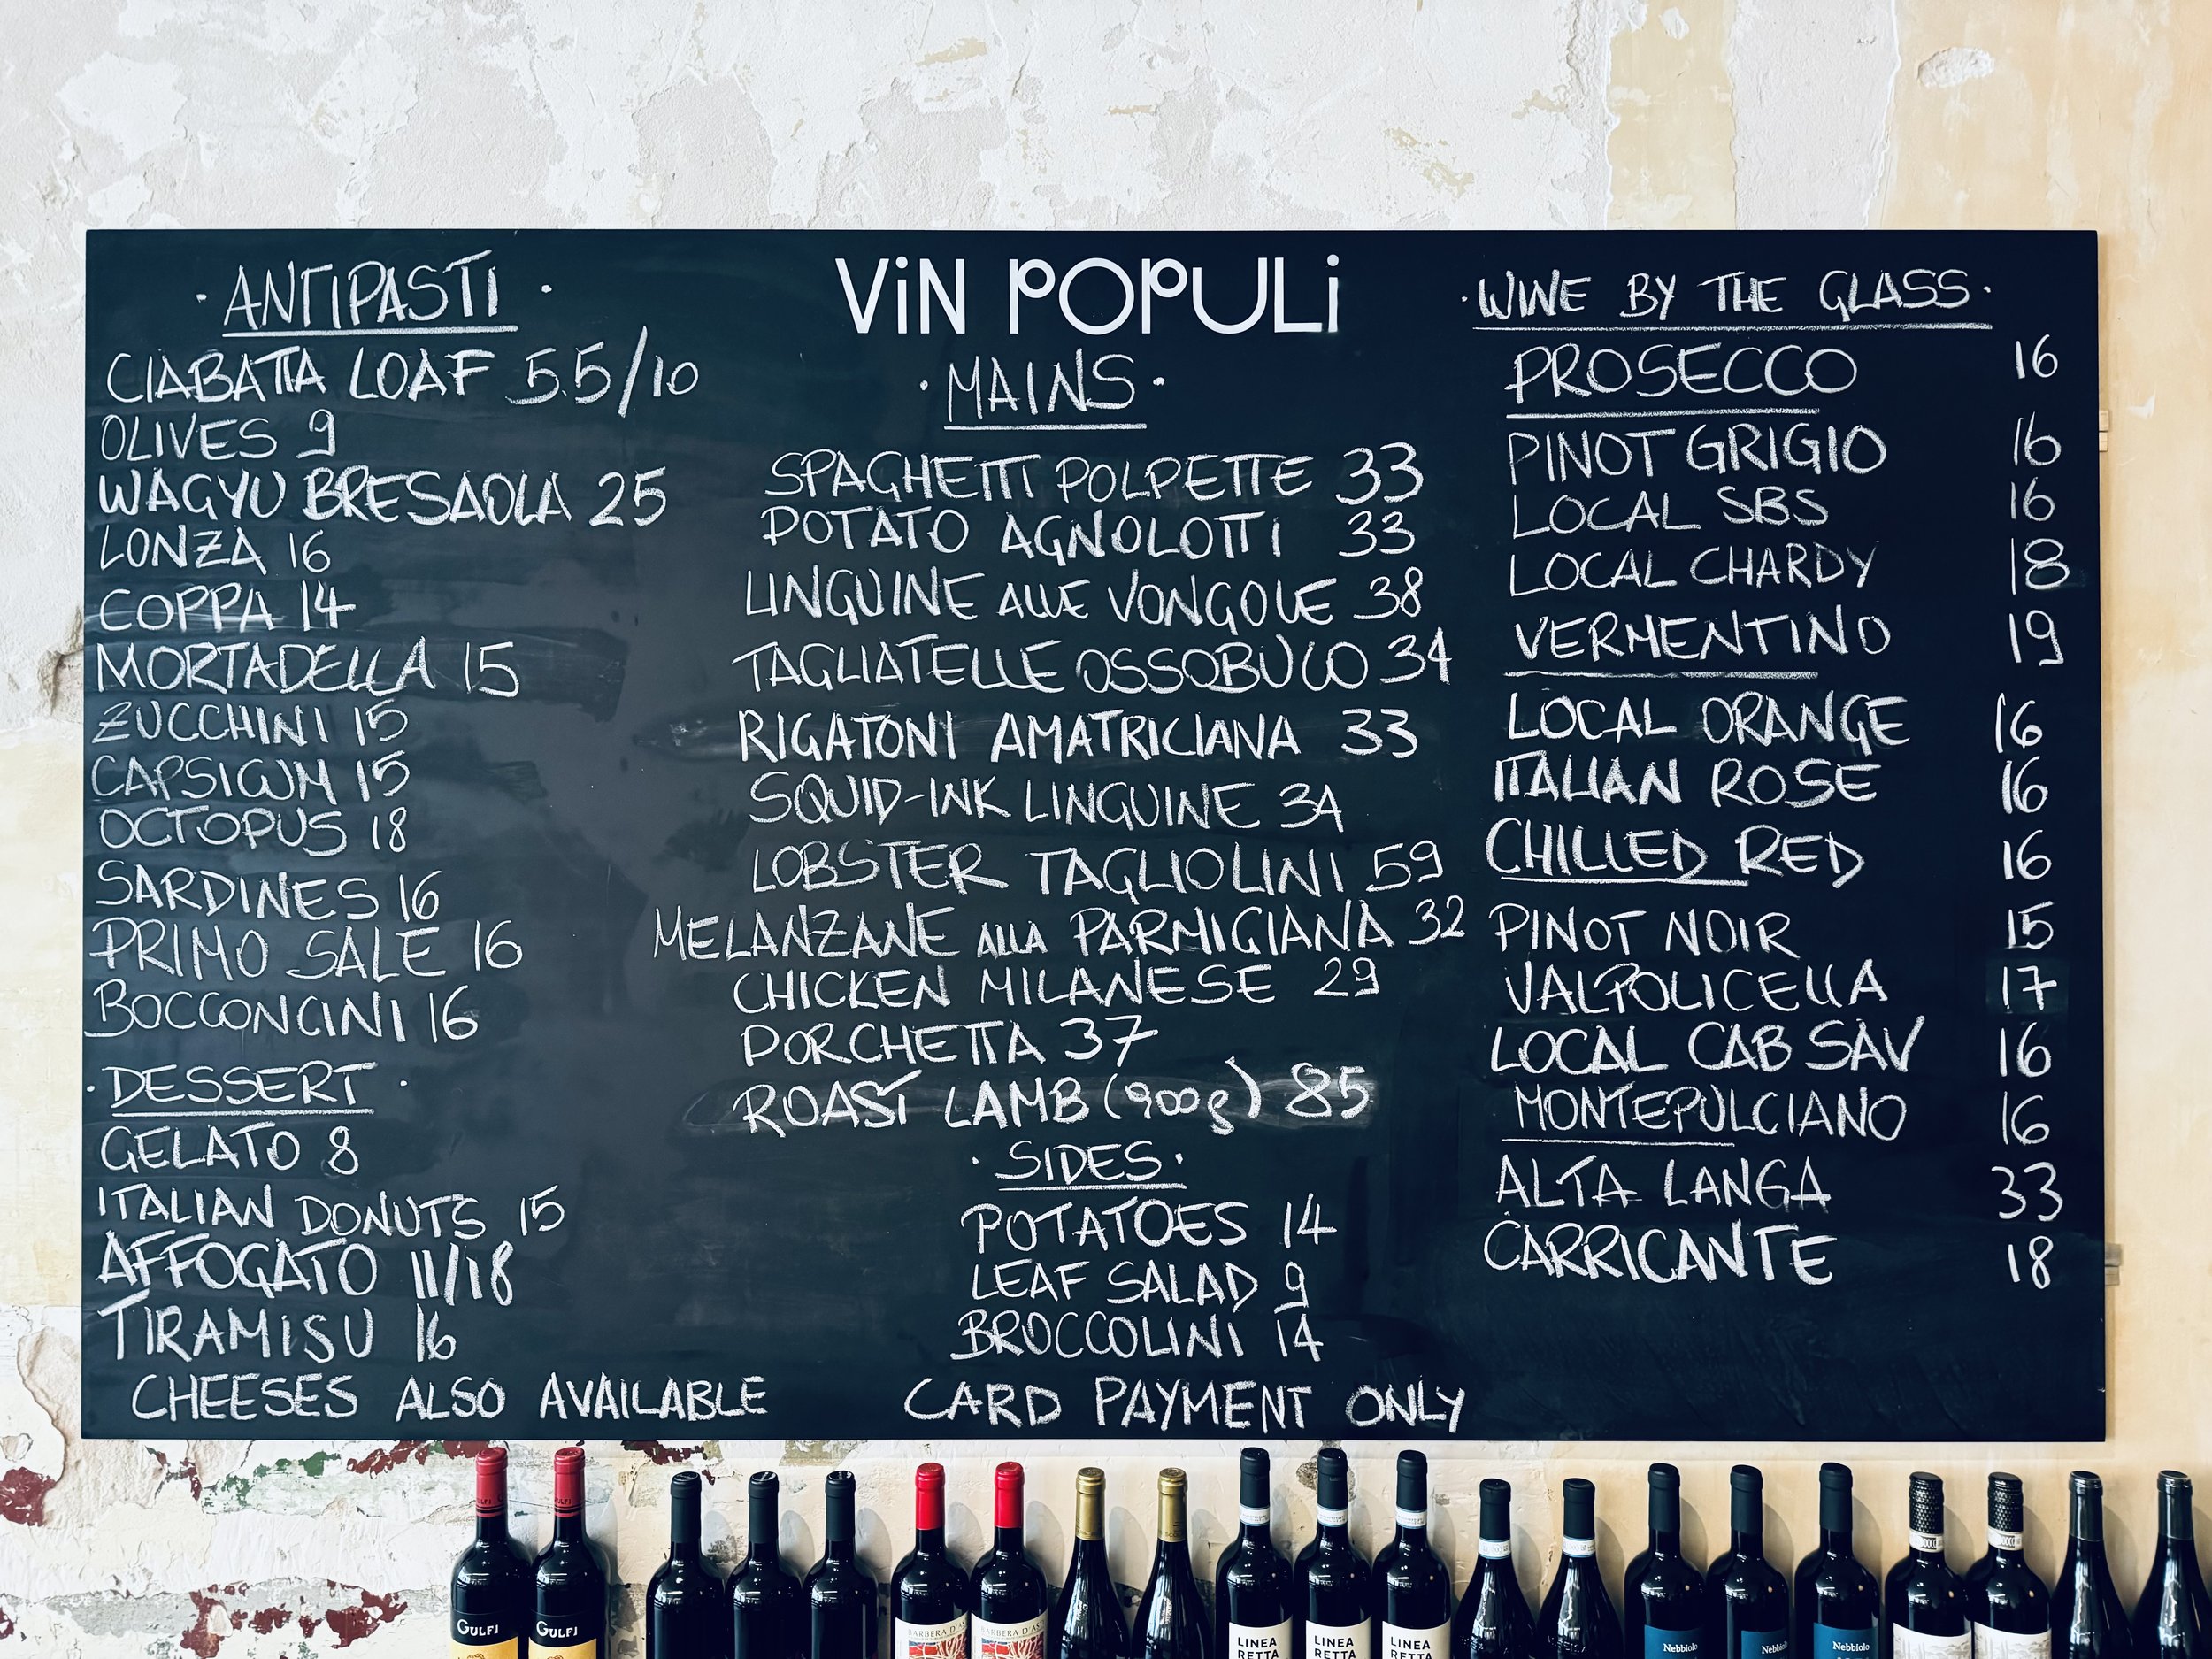 · ANTIPASTI ·
CIABATTA LOAF 5.5/10
OLIVES 9
WAGYU BRESAOLA 25
LONZA 16
COPPA 14
MORTADELLA 15
ZUCCHINI 15
CAPSICUM 15
OCTOPUS 18
SARDINES 16
PRIMO SALE 16
BOCCONCINI 16
· DESSERT ·
GELATO 8
ITALIAN DONUTS 15
AFFOGATO 11/18
TIRAMISU 16
CHEESES ALSO AVAILABLE
ViN POPULi
· MAINS ·
SPAGHETTI POLPETTE 33
POTATO AGNOLOTTI 33
LINGUINE ALLE VONGOLE 38
TAGLIATELLE OSSOBUCO 34
RIGATONI AMATRICIANA 33
SQUID-INK LINGUINE 34
LOBSTER TAGLIOLINI 59
MELANZANE ALLA PARMIGIANA 32
CHICKEN MILANESE 29
PORCHETTA 37
ROAST LAMB (900g) 85
· SIDES ·
POTATOES 14
LEAF SALAD 9
BROCCOLINI 14
CARD PAYMENT ONLY
· WINE BY THE GLASS ·
PROSECCO 16
PINOT GRIGIO 16
LOCAL SBS 16
LOCAL CHARDY 18
VERMENTINO 19
LOCAL ORANGE 16
ITALIAN ROSE 16
CHILLED RED 16
PINOT NOIR 15
VALPOLICELLA 17
LOCAL CAB SAV 16
MONTEPULCIANO 16
ALTA LANGA 33
CARRICANTE 18
GULFI
GULFI
BARBERA D'AS
BARBERA D'AS
LINEA
RETTA
LINEA
RETTA
LINEA
RETTA
Nebbiolo
Nebbiolo
Nebbiolo